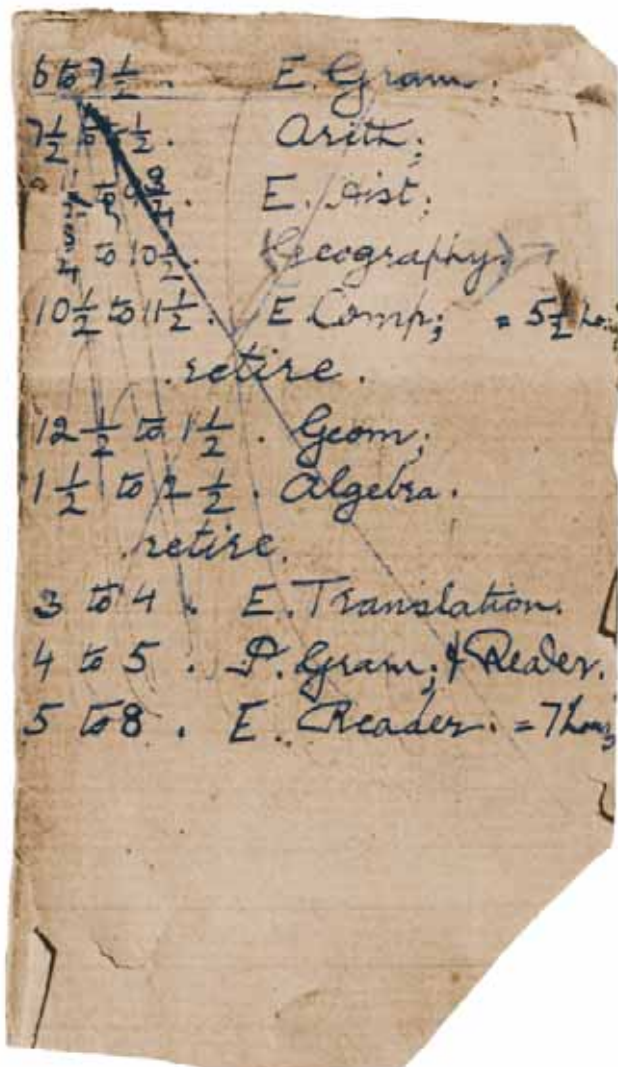 6 to 7 1/2 . E. Gram.
7 1/2 to 1/2 . Arith;
to 9 3/4 . E. Hist;
3/4 to 10 1/2 . (Geography)
10 1/2 to 11 1/2 . E. Comp; = 5 1/2
retire.
12 1/2 to 1 1/2 . Geom;
1 1/2 to 2 1/2 . Algebra.
retire.
3 to 4 . E. Translation.
4 to 5 . P. Gram; & Reader.
5 to 8 . E. Reader. = 7 hours